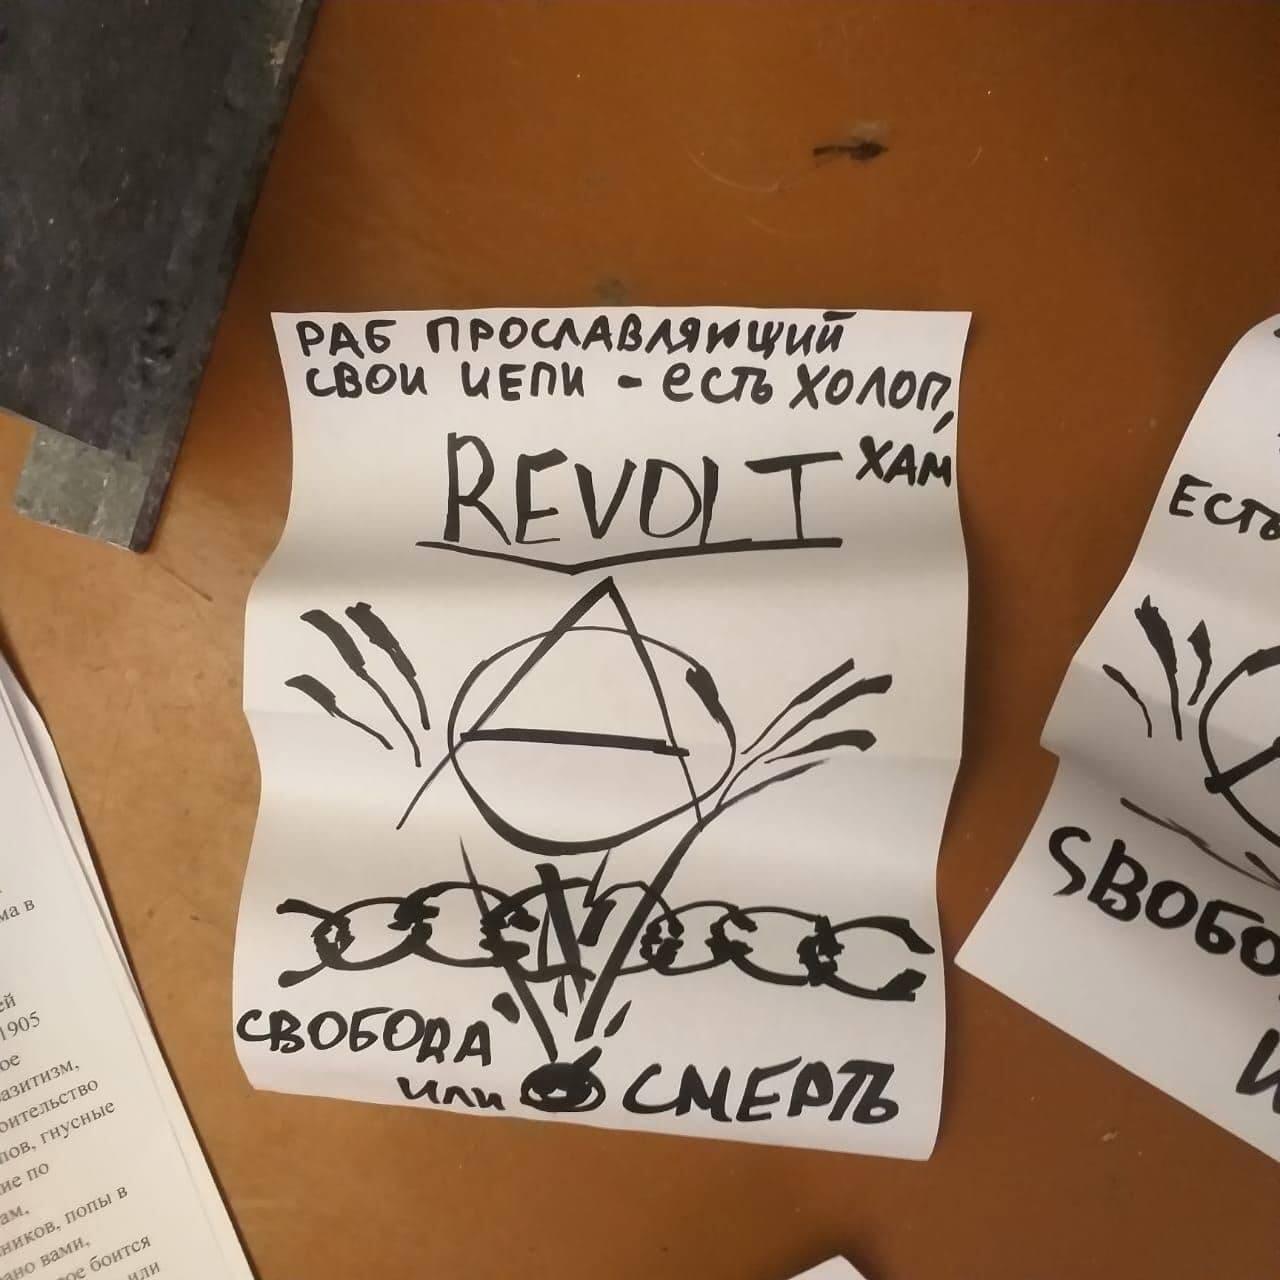 РАБ ПРОСЛАВЛЯЮЩИЙ
СВОИ ЦЕПИ - ЕСТЬ ХОЛОП,
ХАМ
REVOLT
СВОБОДА
ИЛИ СМЕРТЬ
ЕСТЬ
SВОБО
И
ма в
ей
1905
ое
разитизм,
оительство
пов, гнусные
ие по
ам,
ников, попы в
ано вами,
рое боится
или